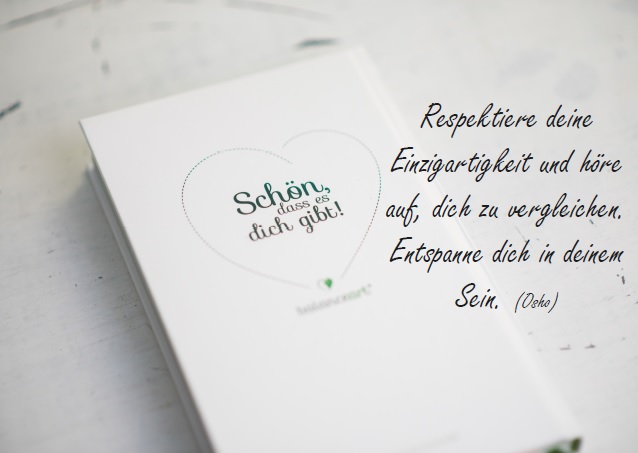 Schön,
dass es
dich gibt!
Respektiere deine
Einzigartigkeit und höre
auf, dich zu vergleichen.
Entspanne dich in deinem
Sein. (Osho)